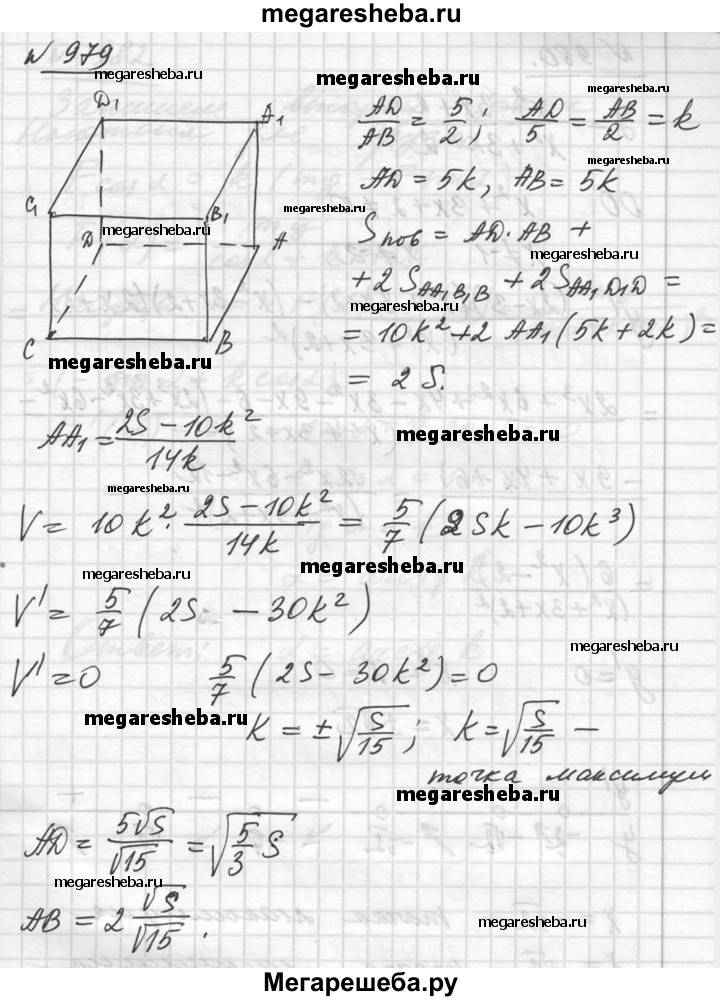 megaresheba.ru
№ 979
megaresheba.ru
megaresheba.ru
D₁ A₁
AD/AB = 5/2; AD/5 = AB/2 = k
megaresheba.ru
AD = 5k, AB = 5k
megaresheba.ru
C₁ B₁
megaresheba.ru
D A
Sпов = AD · AB +
megaresheba.ru
+ 2 S_AA₁B₁B + 2 S_AA₁D₁D =
megaresheba.ru
= 10k² + 2 AA₁ (5k + 2k) =
C B
megaresheba.ru
= 2 S.
megaresheba.ru
AA₁ = (2S − 10k²)/14k
megaresheba.ru
V = 10k² · (2S − 10k²)/14k = 5/7 (2Sk − 10k³)
megaresheba.ru
megaresheba.ru
V' = 5/7 (2S − 30k²)
megaresheba.ru
V' = 0 5/7 (2S − 30k²) = 0
megaresheba.ru
K = ±√(S/15); K = √(S/15) −
точка максимум
megaresheba.ru
AD = 5√S/√15 = √(5/3 S)
megaresheba.ru
AB = 2 √S/√15.
megaresheba.ru
Мегарешеба.ру